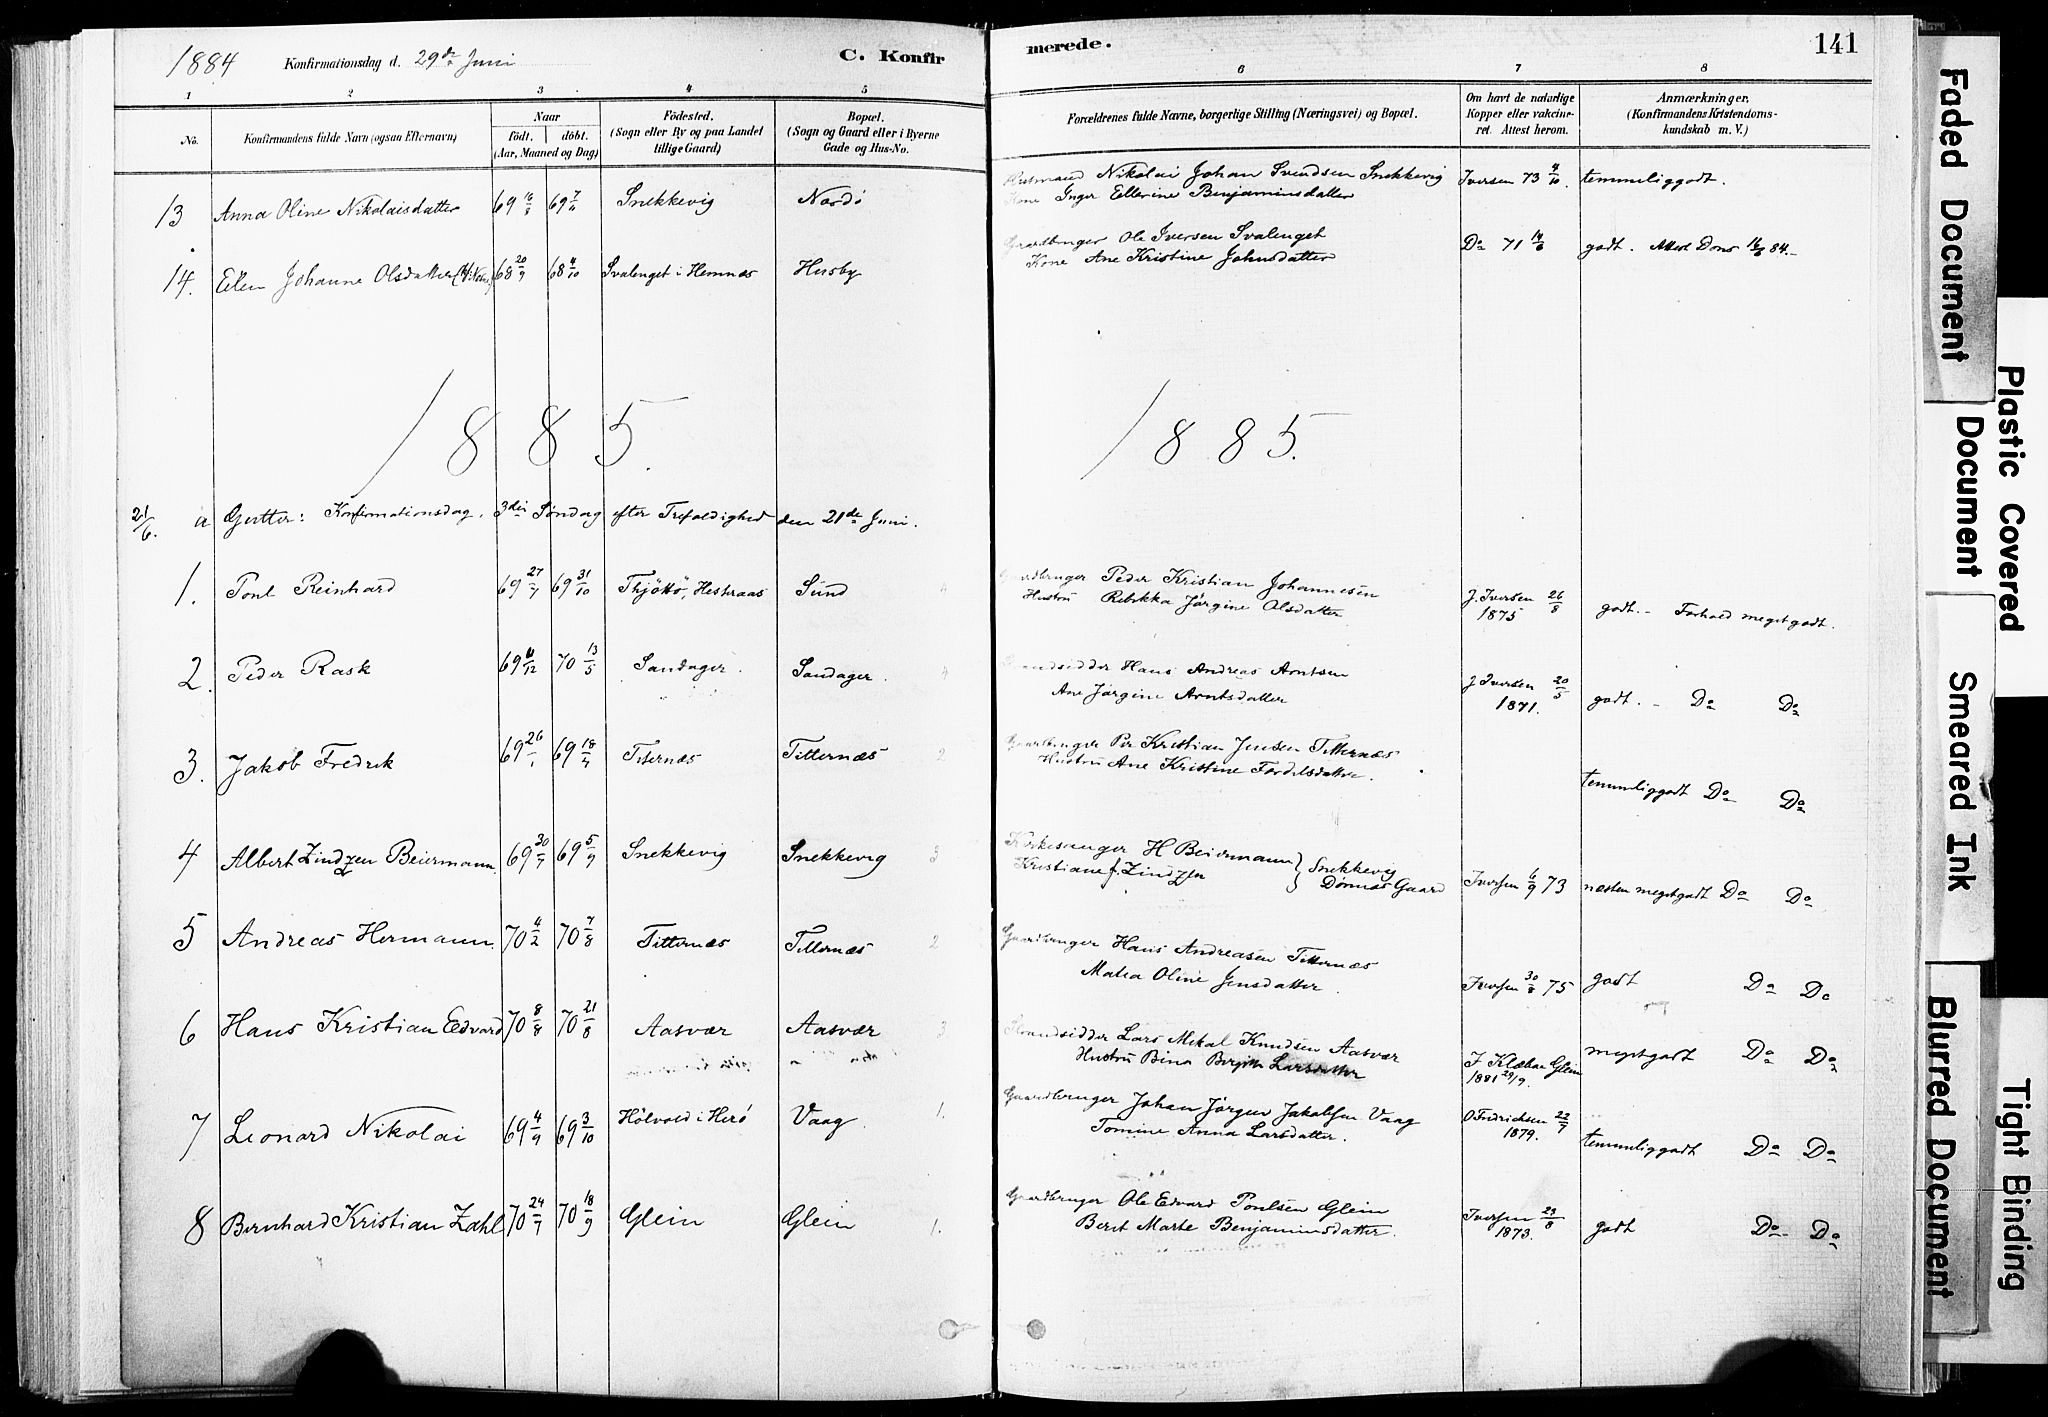 1884 Konfirmationsdag d. 29de Juni C. Konfir
merede. 141
1 2 3 4 5 6 7 8
No. Konfirmandens fulde Navn (ogsaa Efternavn) Naar født. døbt. (Aar, Maaned og Dag) Födested. (Sogn eller By og paa Landet tillige Gaard) Bopæl. (Sogn og Gaard eller i Byerne Gade og Hus-No.
Forældrenes fulde Navne, borgerlige Stilling (Næringsvei) og Bopæl. Om havt de naturlige Kopper eller vakcineret. Attest herom. Anmærkninger. (Konfirmandens Kristendomskundskab m. V.)
13 Anna Oline Nikolaisdatter 69 16/8 69 7/11 Snekkevig Nordö
Husmand Nikolai Johan Svendsen Snekkevig Iversen 73 4/10. temmeliggodt.
Kone Inger Ellerine Benjaminsdatter
14. Elen Johanne Olsdatter 68 20/9 68 4/10 Svalenget i Hemnæs Husby
Gaardbruger Ole Iversen Svalenget Do 71 14/6 godt. Attest Døns 14/6 84.-
Kone Ane Kristine Johnsdatter
1885.
1885.
21/6. a Gutter: Konfirmationsdag, 3die Søndag efter Trefoldighed den 21de Juni.
1. Poul Reinhard 69 27/7 69 31/10 Thjöttö, Hestraas Sund
Gaardbruger Peder Kristian Johannesen
Hustru Rebekka Jørgine Olsdatter J. Iversen 26/8 1875 godt. - Forhold megetgodt.
2. Peder Rask 69 6/12 70 13/5 Sandager. Sandager.
Strandsidder Hans Andreas Arntsen
Ane Jørgine Arntsdatter J Iversen 20/5 1871. godt. - Do Do
3. Jakob Fredrik 69 26/1 69 18/4 Titternæs Titternæs 2
Gaardbruger Per Kristian Jensen Titternæs
Hustru Ane Kristine Fordelsdatter. temmeliggodt Do Do
4 Albert Zindzen Beiermann. 69 30/7 69 5/9 Snekkevig Snekkevig 3
Kirkesanger H Beiermann } Snekkevig
Kristiane f. Zindzen } Dønnæs Gaard Iversen 6/9 73 næsten megetgodt Do Do
5 Andreas Hermann 70 4/2 70 7/8 Titternæs Titternæs 2
Gaardbruger Hans Andreasen Titternæs
Matea Oline Jensdatter. Iversen 30/8 75 godt Do Do
6 Hans Kristian Edvard 70 8/8 70 21/8 Aasvær Aasvær 3
Strandsidder Lars Mikal Knudsen Aasvær
Hustru Bina Birgitte Larsdatter J Klæboe Glein 1881 29/9. megetgodt Do Do
7 Leonard Nikolai 69 4/9 69 3/10 Hölvold i Herö Vaag. 1.
Gaardbruger Johan Jørgen Jakobsen Vaag
Tomine Anna Larsdatter. O Fredrichsen 22/7 1879. temmeliggodt Do Do
8 Bernhard Kristian Zahl 70 24/7 70 18/9 Glein Glein 1.
Gaardbruger Ole Edvard Poulsen Glein
Berit Marte Benjaminsdatter. Iversen 23/8 1873. godt Do Do
Faded Document
Plastic Covered Document
Smeared Ink
Blurred Document
Tight Binding